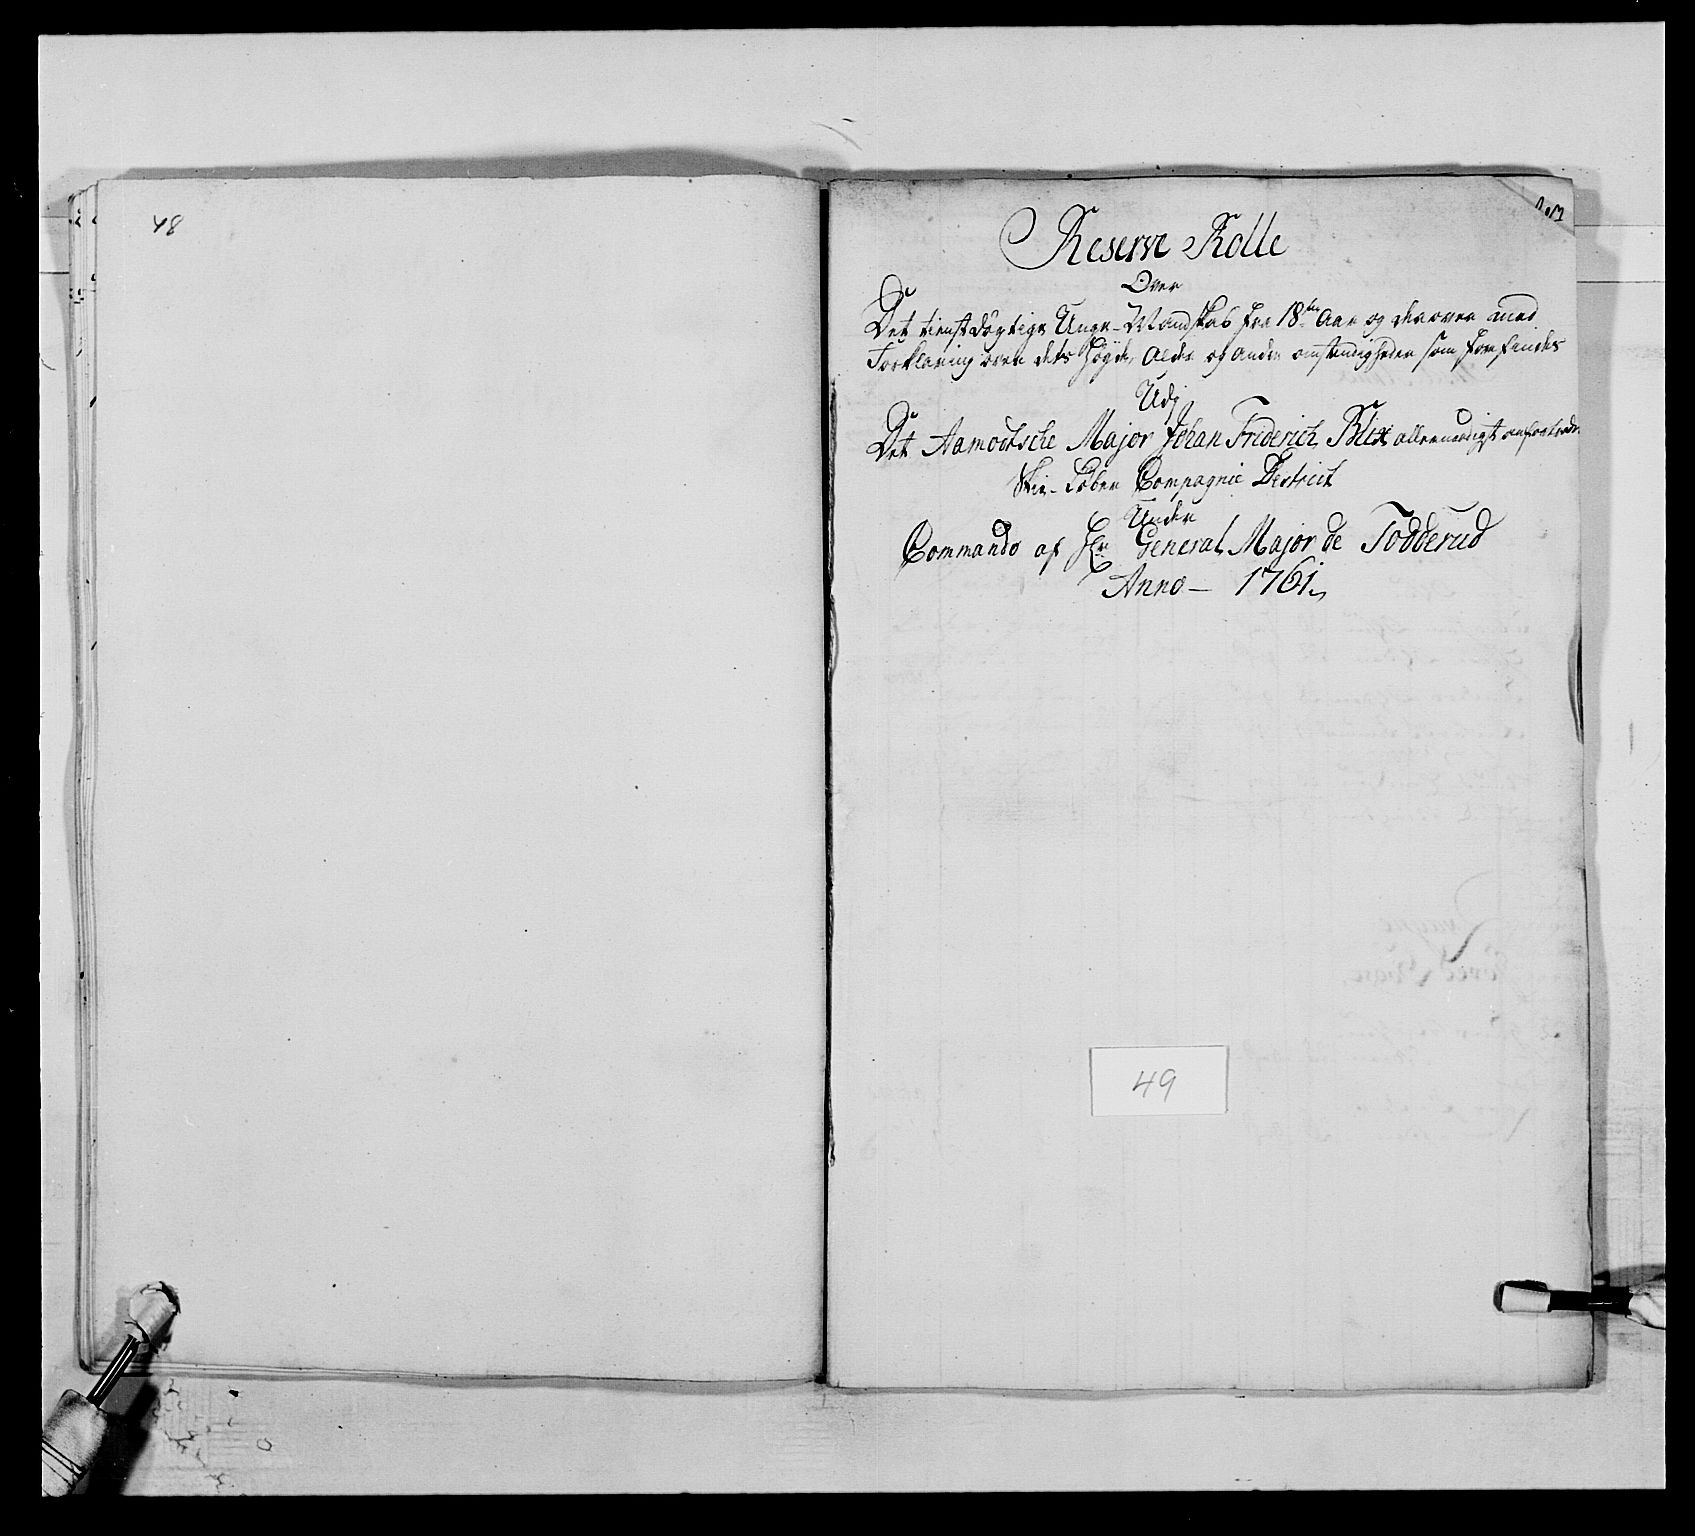 48
Reserve Rolle
Over
Det tienstdögtige Unge-Mandskab fra 18ten Aar og derover med
Forklaring over dets Höyde, Alder og andre omstendigheder som forefindes
Udj
Det Aamodtsche Major Johan Friderich Blix allernaadigst anfortrode
Skie-Löber Compagnie District
Under
Commando af Hr General Major de Todderud
Anno - 1761.
49